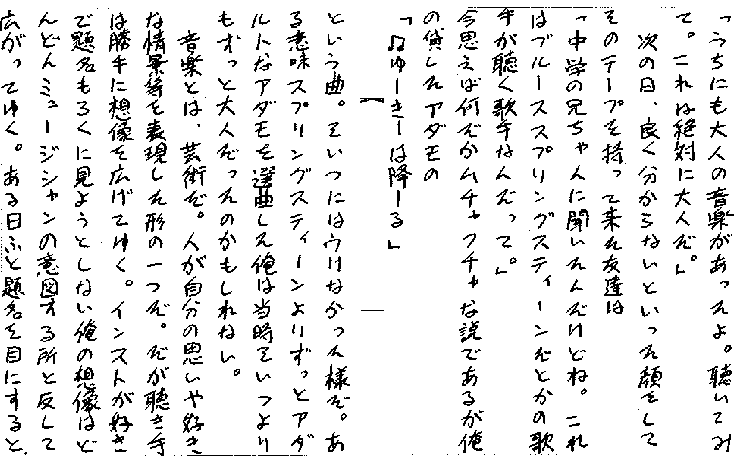 「うちにも大人の音楽があったよ。聴いてみ
て。これは絶対に大人だ。」
次の日、良く分からないといった顔をして
そのテープを持って来た友達は
「中学の兄ちゃんに聞いたんだけどね。これ
はブルーススプリングスティーンだとかの歌
手が聴く歌手なんだって。」
今思えば何だかムチャクチャな説であるが俺
の貸したアダモの
「♫ゆーきーは降ーる」
という曲。そいつにはウけなかった様だ。あ
る意味スプリングスティーンよりずっとアダ
ルトなアダモを選曲した俺は当時そいつより
もずっと大人だったのかもしれない。
音楽とは、芸術だ。人が自分の思いや好き
な情景等を表現した形の一つだ。だが聴き手
は勝手に想像を広げてゆく。インストが好き
で題名もろくに見ようとしない俺の想像はど
んどんミュージシャンの意図する所と反して
広がってゆく。ある日ふと題名を目にすると、